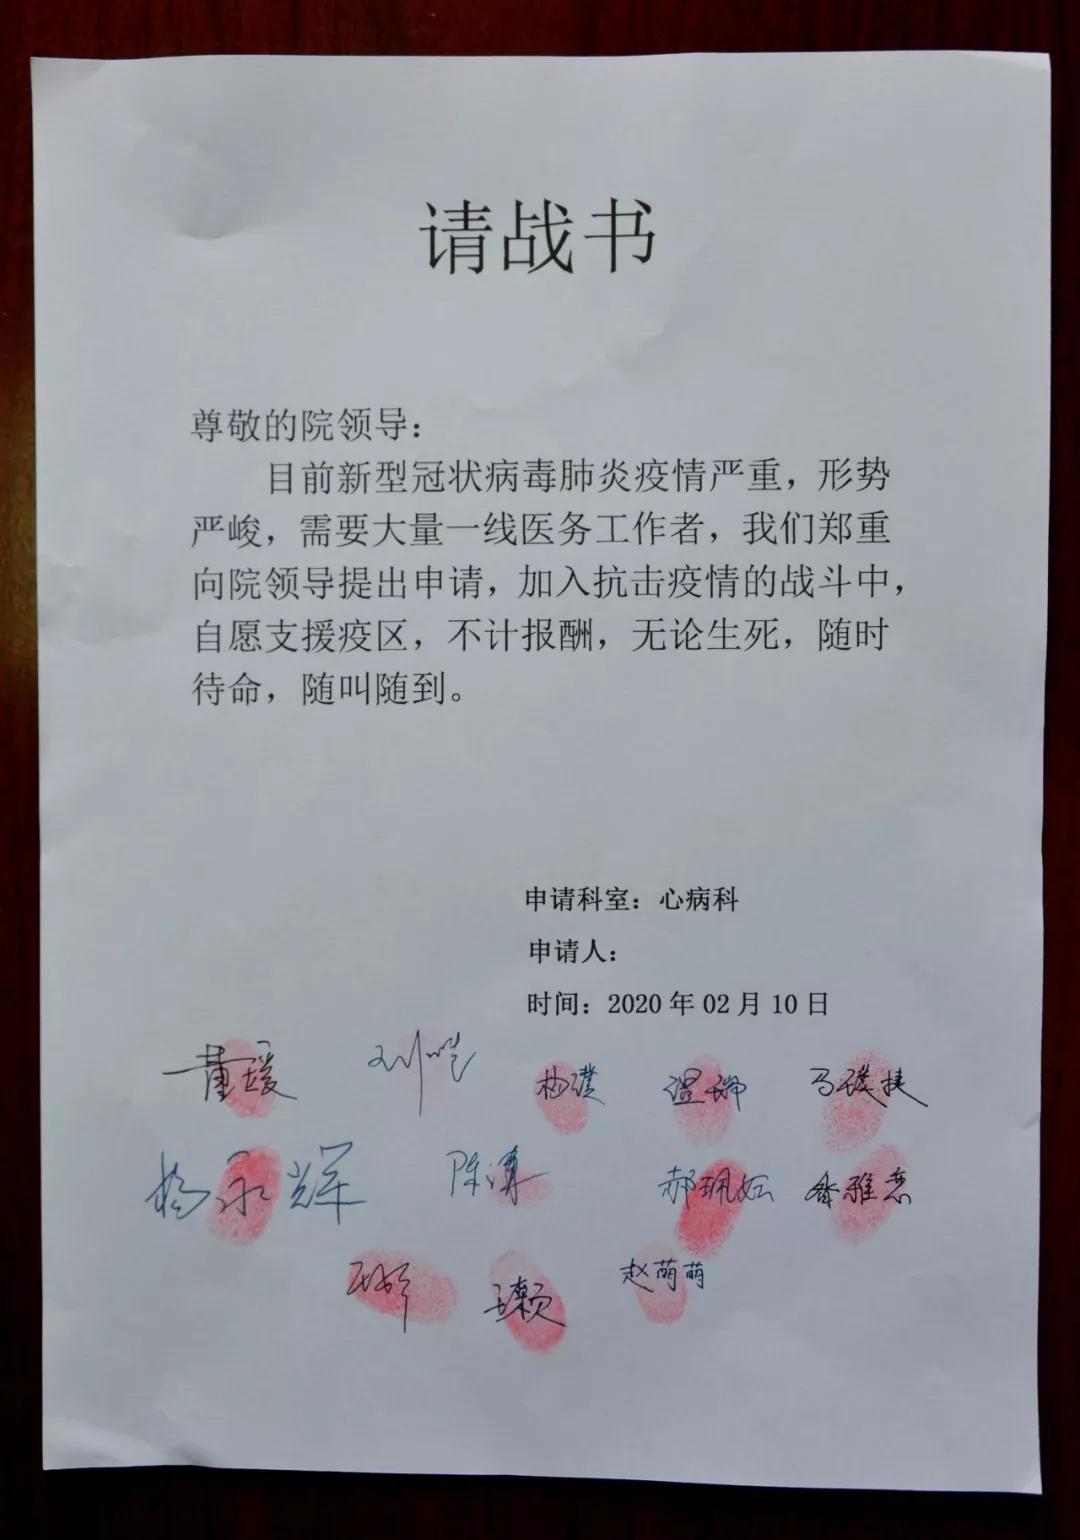 请战书
尊敬的院领导：
目前新型冠状病毒肺炎疫情严重，形势
严峻，需要大量一线医务工作者，我们郑重
向院领导提出申请，加入抗击疫情的战斗中，
自愿支援疫区，不计报酬，无论生死，随时
待命，随叫随到。
申请科室：心病科
申请人：
时间：2020年02月10日
董瑷 杨璞 温瑞 马璞捷
杨永辉 陈 郝珮妘
赵萌萌